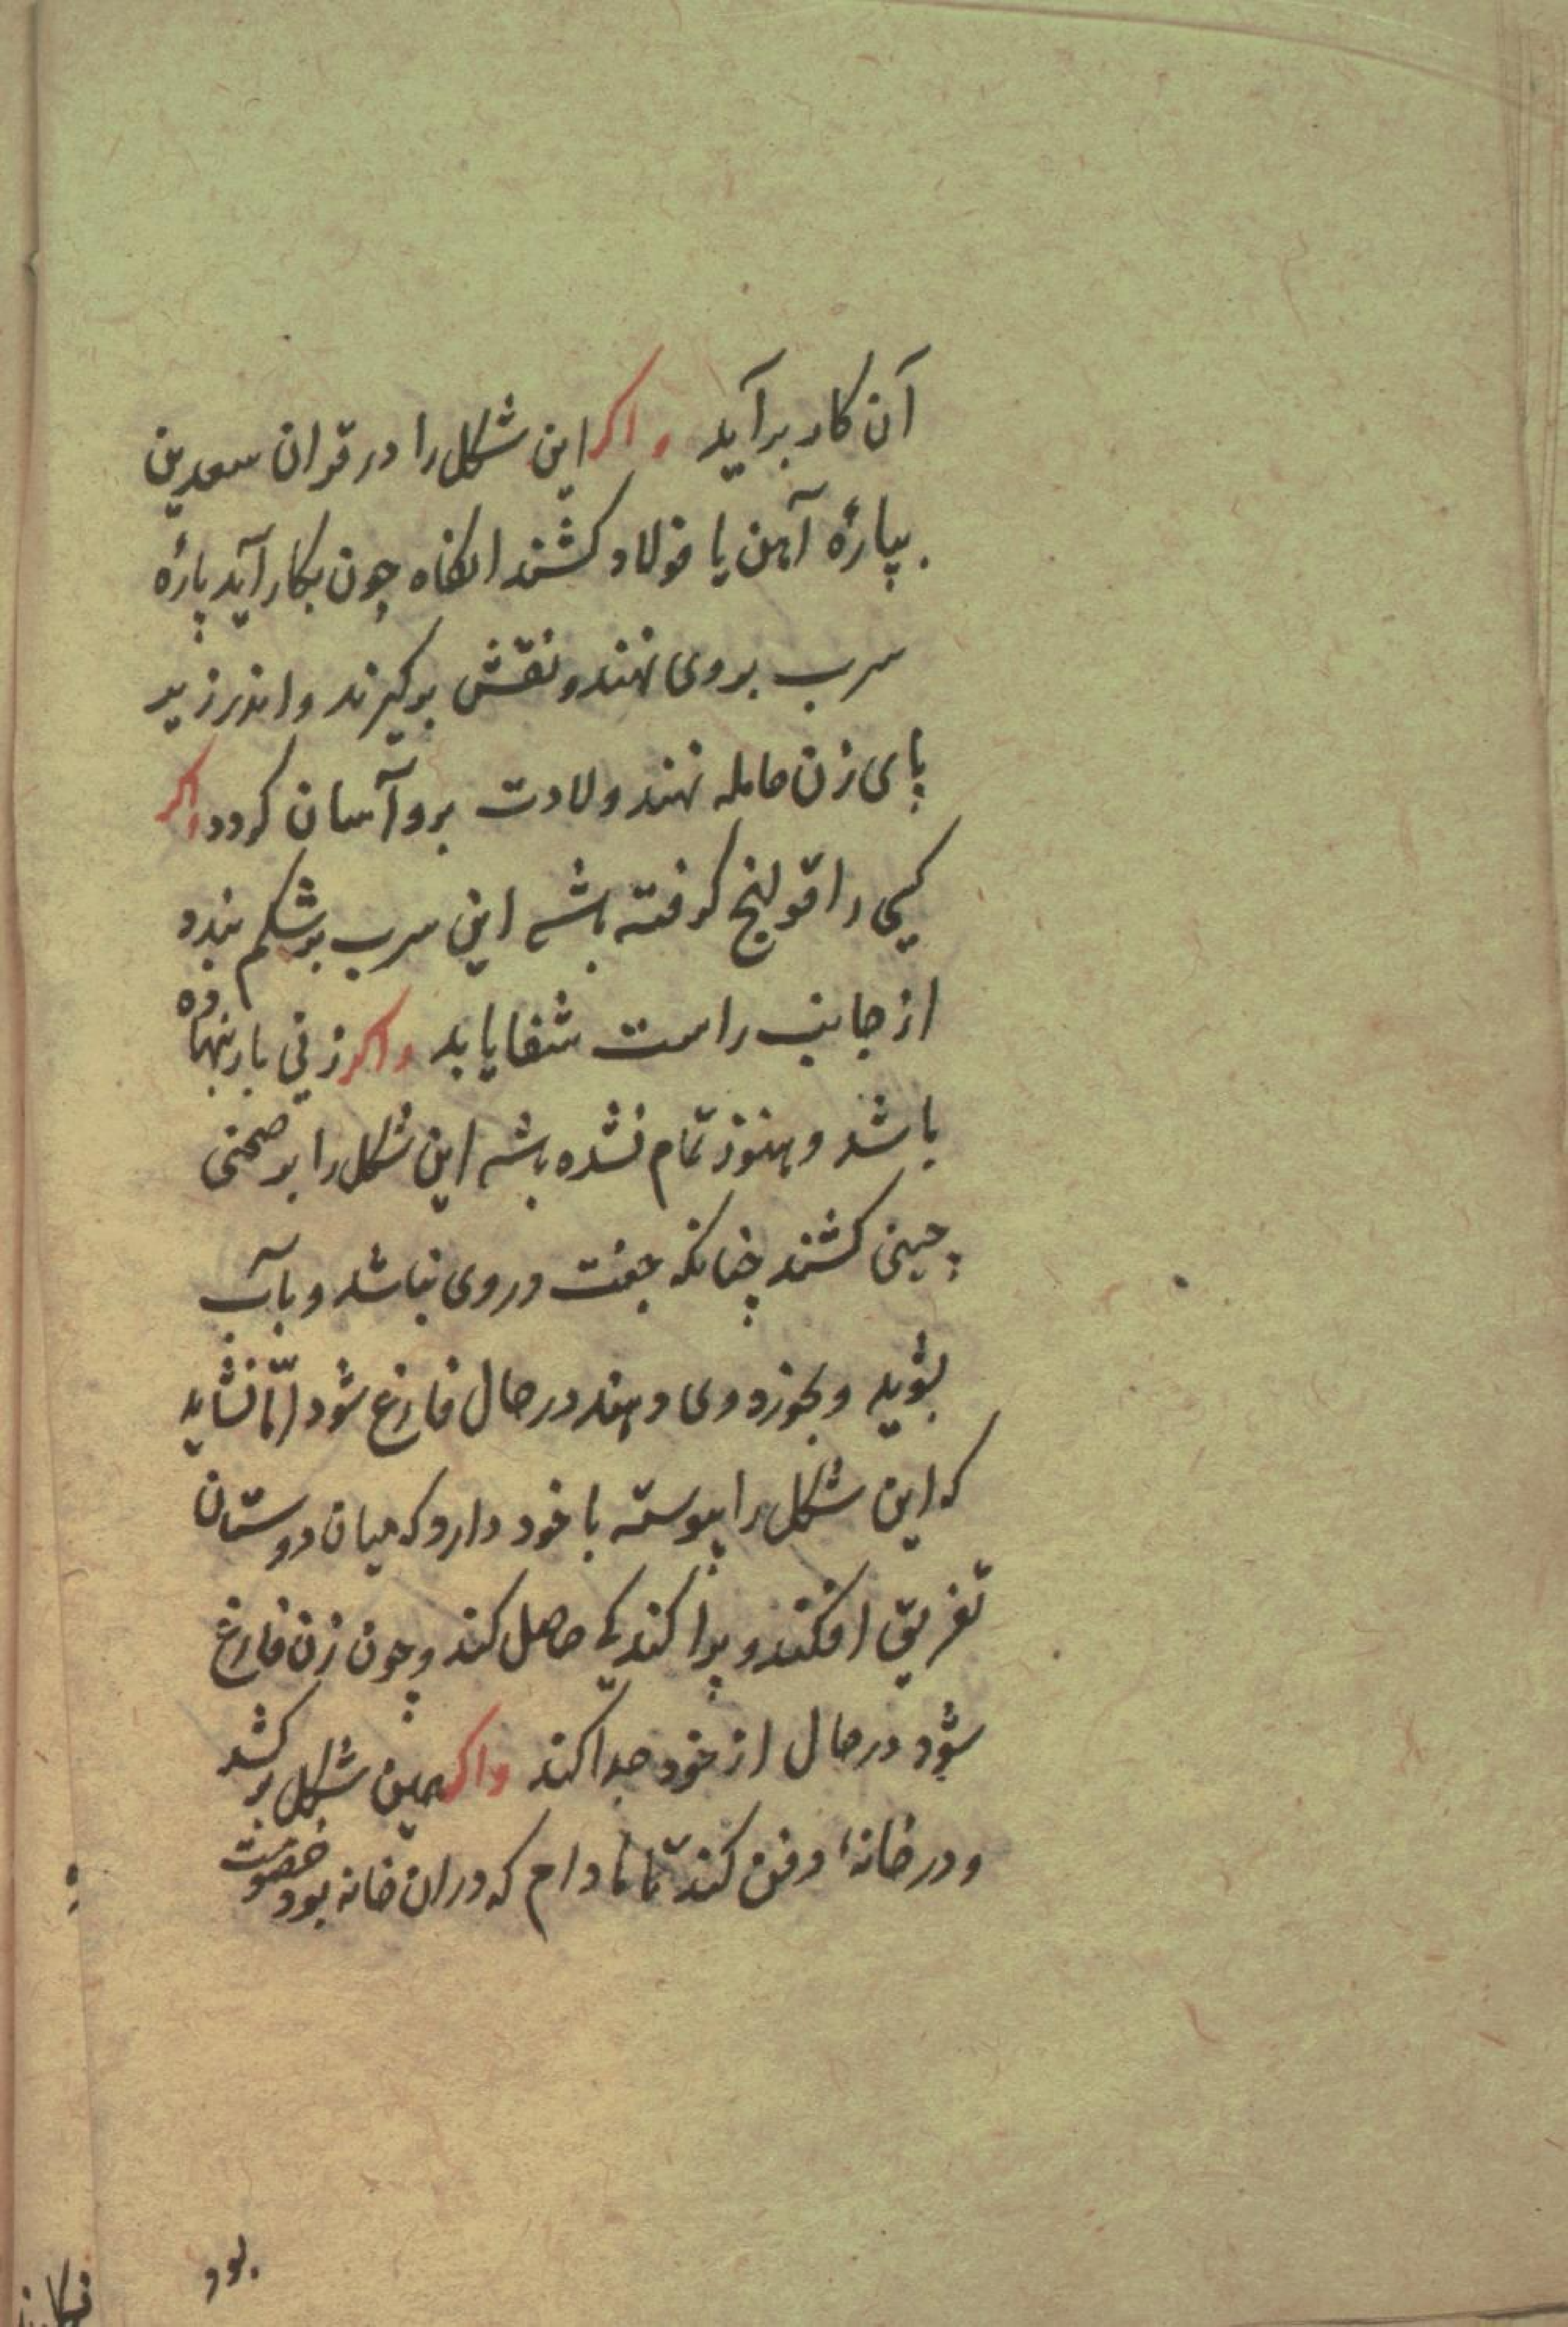 آن کار برآید و اکر این شکل را در قران سعدین
بپارهٔ آهن یا فولاد کشند انکاه چون بکار آید پارهٔ
سرب بروی نهند و نقش برکیرند و اندر زیر
پای زن حامله نهند ولادت برو آسان کردد و اکر
کسی را قولنج کرفته باشد این سرب بر شکم بندد
از جانب راست شفا یابد و اکر زنی بار بنهاده
باشد و هنوز تمام نشده باشد این شکل را بر صحنی
چینی کشند چنانکه جفت در وی نباشد و بآب
بشوید و بخورد وی دهند در حال فارغ شود امّا نشاید
که این شکل را پیوسته با خود دارد که میان دوستان
تفریق افکند و پراکندکی حاصل کند و چون زن فارغ
شود در حال از خود جدا کند و اکر همین شکل بر کشد
و در خانهٔ دفن کند تا مادام که در ان خانه بود خصومت
بود